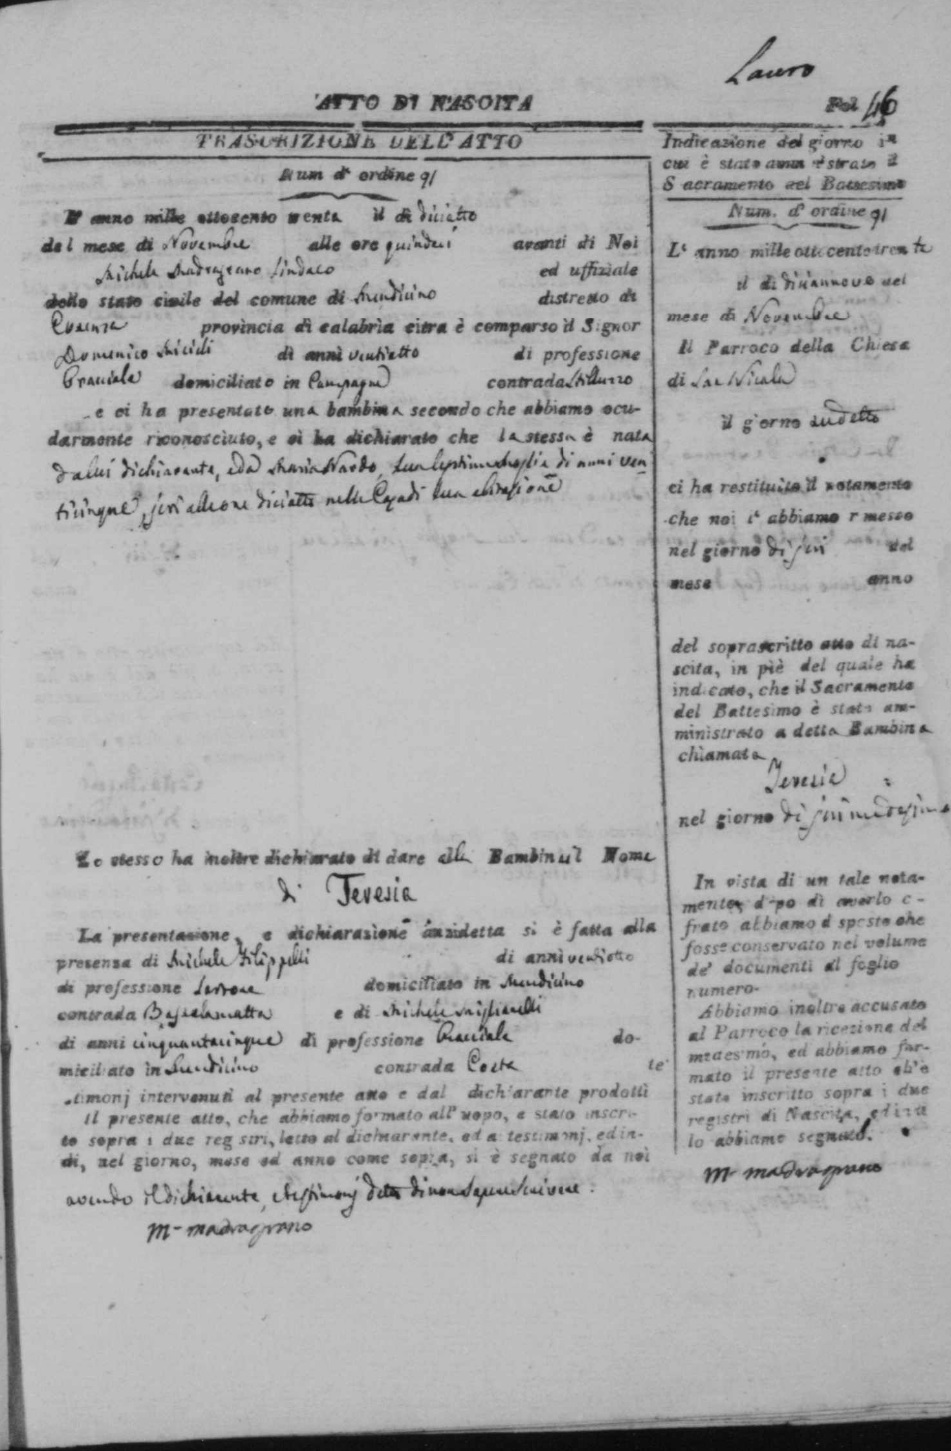 Lauro
ATTO DI NASCITA
Fol 46
TRASCRIZIONE DELL' ATTO
Num d' ordine 91
L' anno mille ottocento trenta il di diciotto
del mese di Novembre alle ore quindeci avanti di Noi
Michele Madragrano Sindaco ed uffiziale
dello stato civile del comune di Mendicino distretto di
Cosenza provincia di calabria citra è comparso il Signor
Domenico di anni ventiotto di professione
Bracciale domiciliato in Campagna contrada
e ci ha presentato una bambina secondo che abbiamo ocu-
darmente riconosciuto, e ci ha dichiarato che la stessa è nata
da lui dichiarante, e da Maria Nardo, sua legittima moglie di anni ven
ticinque, jeri alle ore diciotto nella Casa di sua abitazione
Lo stesso ha inoltre dichiarato di dare alla Bambina il Nome
di Teresia
La presentazione, e dichiarazione anzidetta si è fatta alla
presenza di Michele Filippelli di anni ventiotto
di professione domiciliato in Mendicino
contrada Basciolamatta e di Michele Miglianelli
di anni cinquantacinque di professione Bracciale do-
miciliato in Mendicino contrada Costa te
stimonj intervenuti al presente atto e dal dichiarante prodotti
Il presente atto, che abbiamo formato all' uopo, e stato inscri-
to sopra i due registri, letto al dichiarante, ed a testimonj, ed in-
di, nel giorno, mese ed anno come sopra, si è segnato da noi
avendo il dichiarante, e testimonj detto di non sapere scrivere.
Mle madragrano
Indicazione del giorno in
cui è stato amministrato il
Sacramento del Battesimo
Num. d' ordine 91
L' anno mille ottocento trenta
il di diciannove del
mese di Novembre
Il Parroco della Chiesa
di San Nicola
il giorno sudetto
ci ha restituito il notamento
che noi l' abbiamo rimesso
nel giorno di jeri del
mese anno
del soprascritto atto di na-
scita, in piè del quale ha
indicato, che il Sacramento
del Battesimo è stato am-
ministrato a detta Bambina
chiamata
Teresia
nel giorno di jeri medesimo
In vista di un tale nota-
mento, dopo di averlo c -
frato abbiamo disposto che
fosse conservato nel volume
de' documenti al foglio
numero-
Abbiamo inoltre accusato
al Parroco la ricezione del
medesimo, ed abbiamo for-
mato il presente atto ch'è
stato inscritto sopra i due
registri di Nascita, ed indi
lo abbiamo segnato.
Mle madragrano